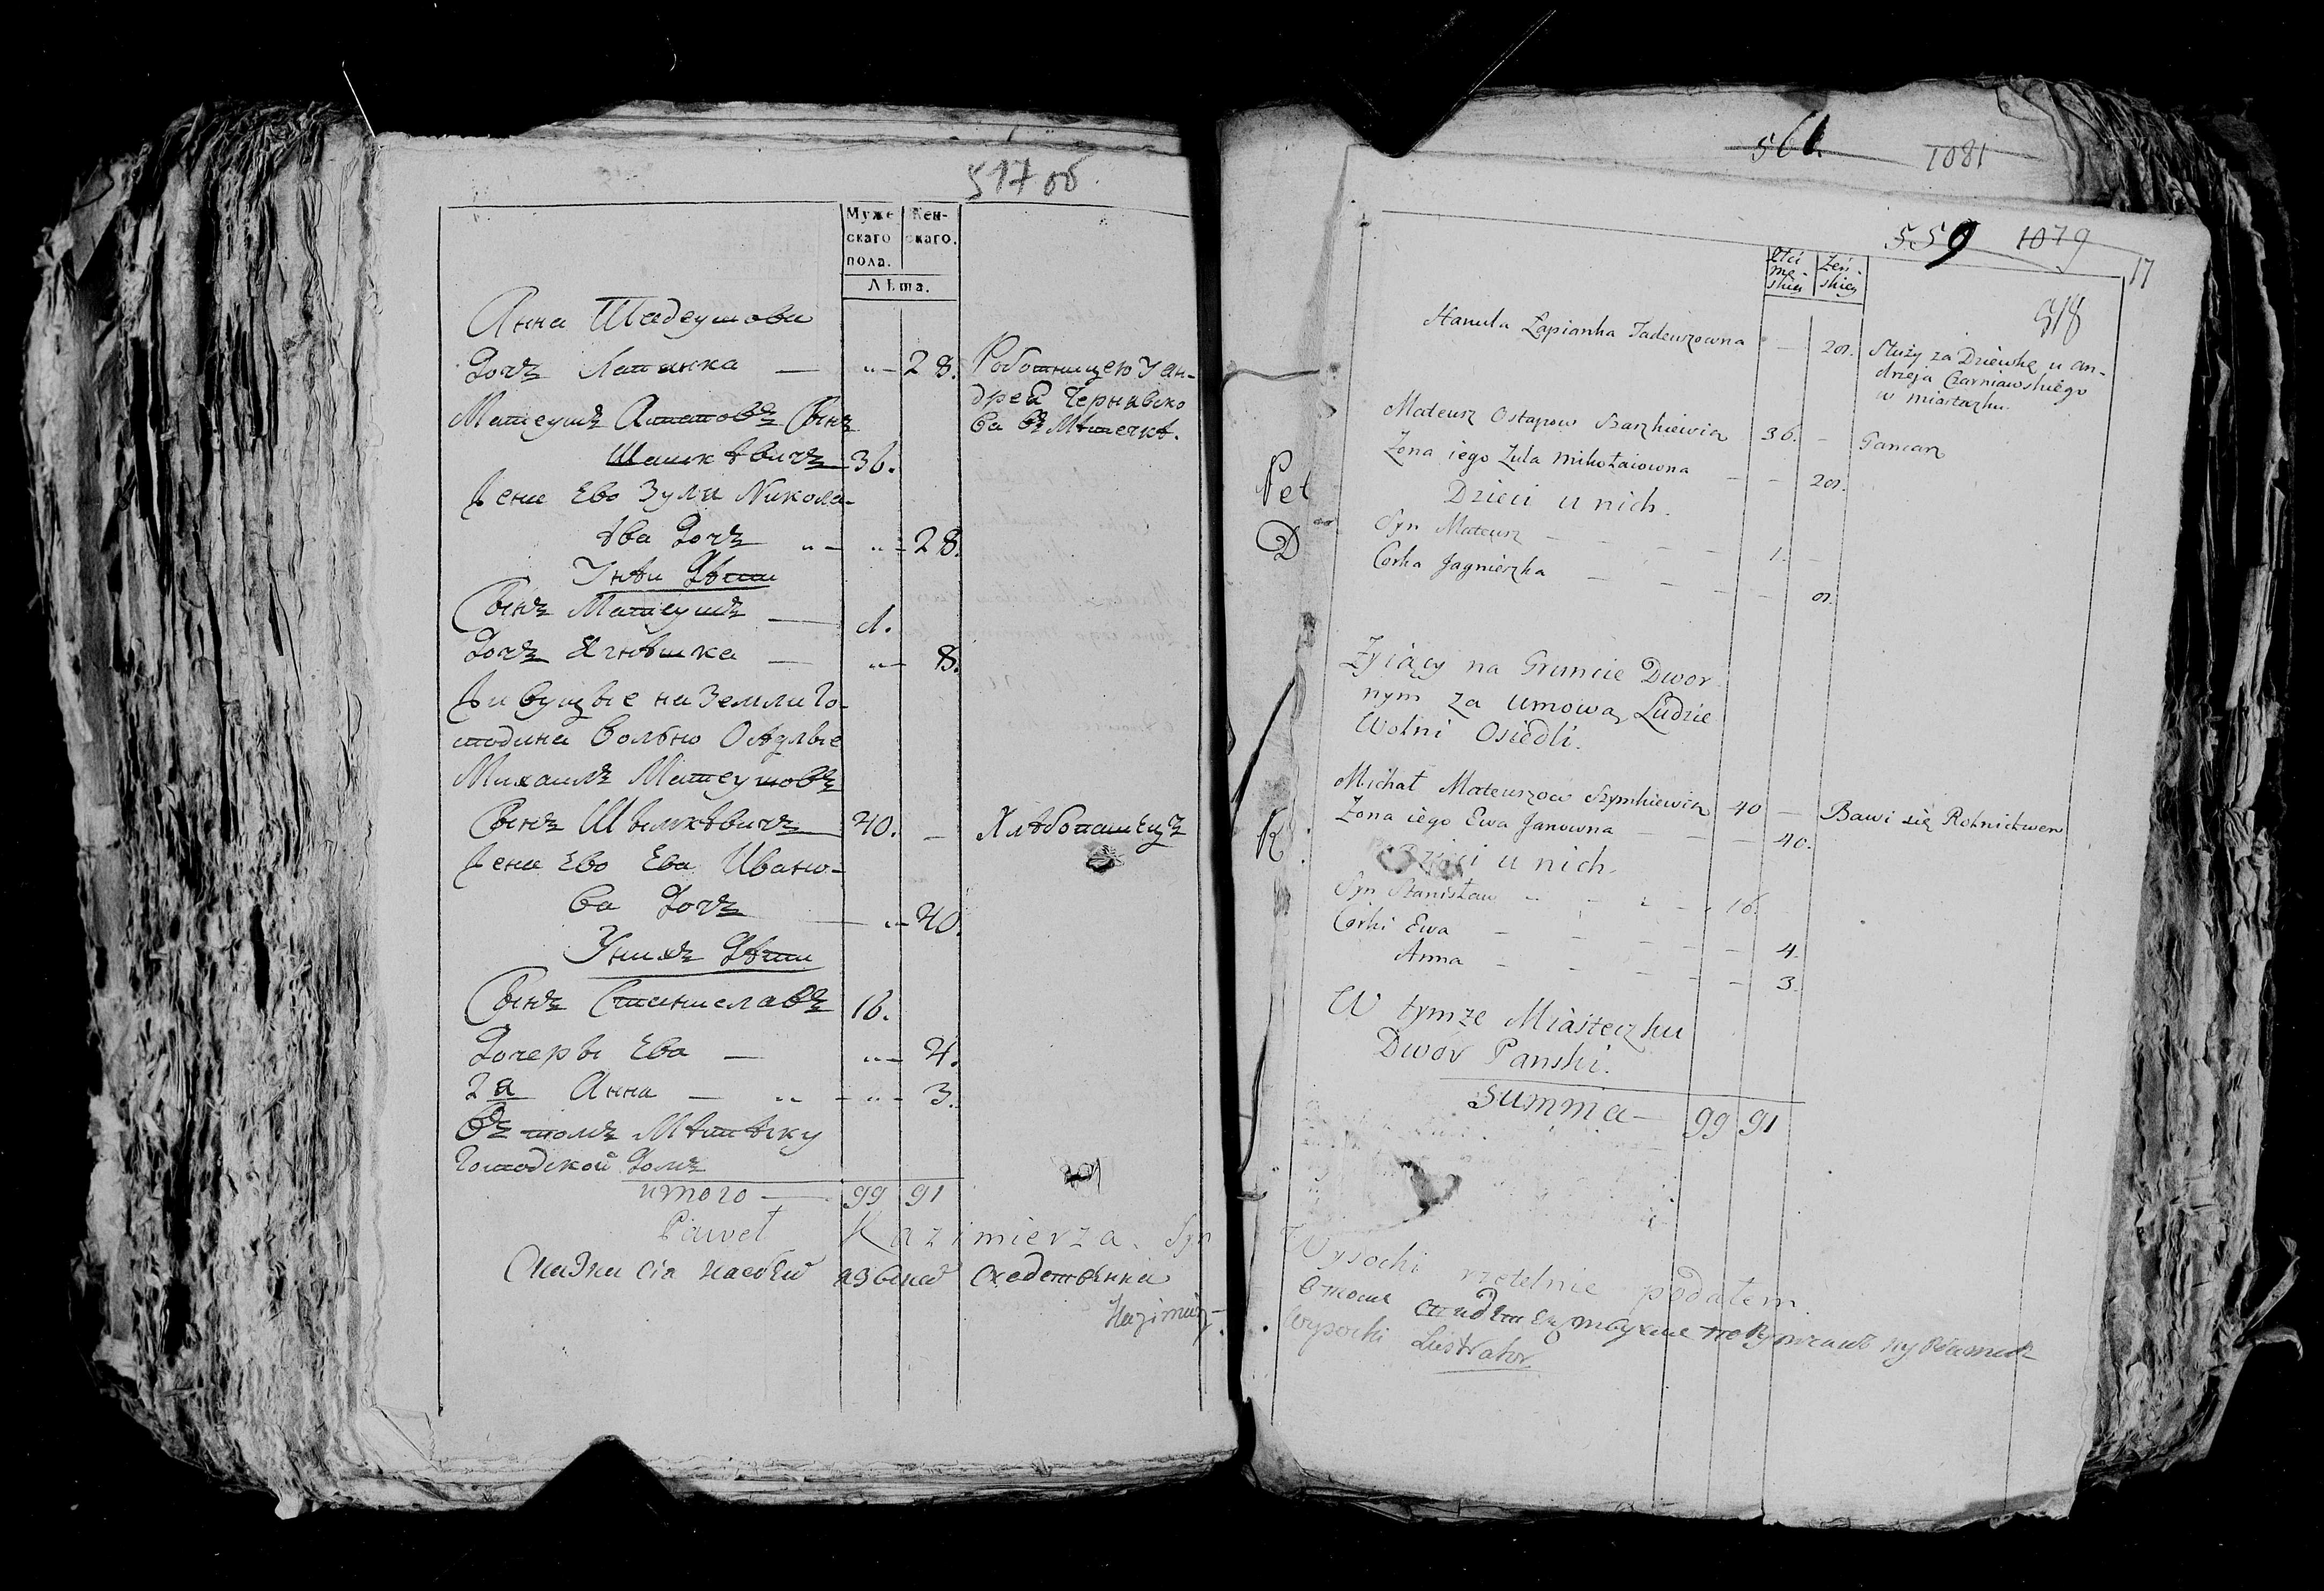 517 об.
Муже
скаго
пола.
Жен-
скаго.
Лѣта.
Анна Шадеушова
Дочъ Лапанка — " — 28. Роботницею у Ан-
дрея Чернявско
ва въ Мѣтечкѣ.
Матеушъ Астаповъ Сынъ
Шашкѣвичъ 36.
Жена Ево Зуля Никола-
ѣва Дочъ " — " — 28.
У нѣи Дѣти
Сынъ Матеушъ — 1.
Дочъ Ягнѣшка — " — 8.
Живущые на Земли Го-
сподина вольно Осѣдлые
Михаилъ Матеушовъ
Сынъ Шымкѣвичъ 40. — Хлѣбопашецъ
Жена Ево Ева Ивано-
ва Дочъ " — 40.
У нихъ Дѣти
Сынъ Станиславъ 16.
Дочеры Ева — " — 4.
2я Анна — " — " — 3.
Въ томъ Мѣстѣчку
Господской Домъ
итого — 99 91
Paweł Kazimierza Syn
Kazimierz
561 1081
559 1079
17
518
Hanula Łapianka Tadeuszowna — 28. Służy za Dziewkę u An-
drzeja Czarniawskiego
w miasteczku.
Mateusz Ostapow Saszkiewicz 36. — Gancarz
Żona iego Zula Mikołaiowna — — 28.
Dzieci u nich.
Syn Mateusz — — — — 1. —
Corka Jagnieszka — — — — 8.
Żyiący na Gruncie Dwor
nym za umową Ludzie
Wolni Osiedli.
Michał Mateuszow Szymkiewicz 40 — Bawi się Rolnictwem
Żona iego Ewa Janowna — — — 40.
Dzieci u nich.
Syn Stanisław — — — 16.
Corki Ewa — — — — — 4.
Anna — — — — — 3.
W tymże Miasteczku
Dwor Panski.
Summa — 99 91
Wysocki rzetelnie podałem.
Wysocki Lustrator
Pet
D
K